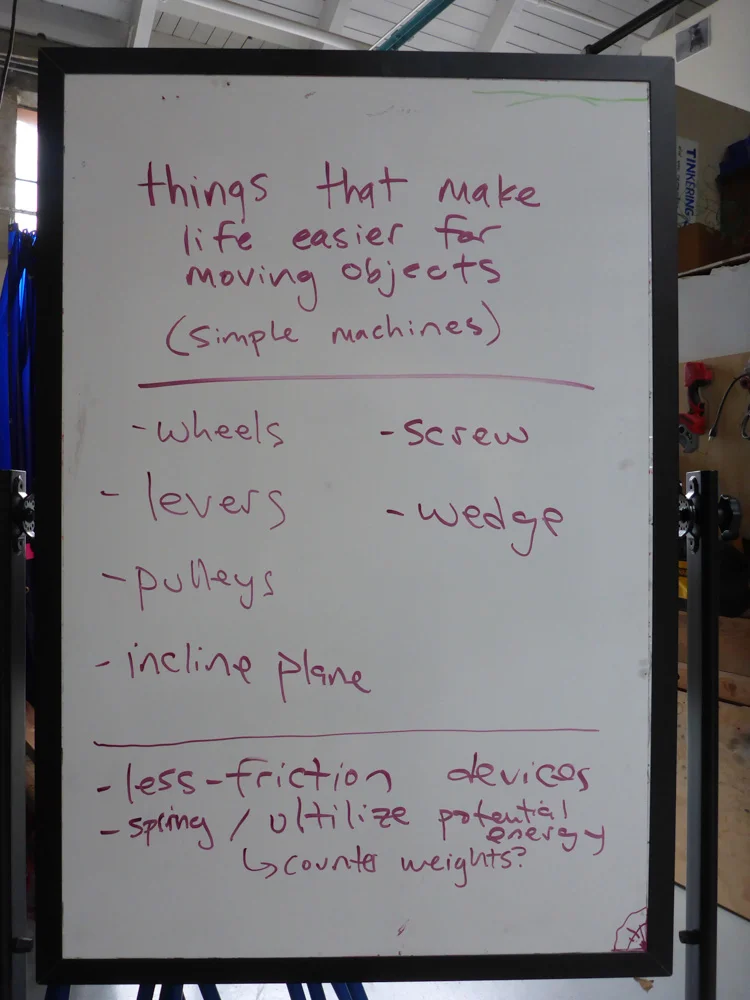 things that make
life easier for
moving objects
(simple machines)
- wheels
- levers
- pulleys
- incline plane
- screw
- wedge
- less-friction devices
- spring / ultilize potential energy
↳ counter weights?
TINKERING